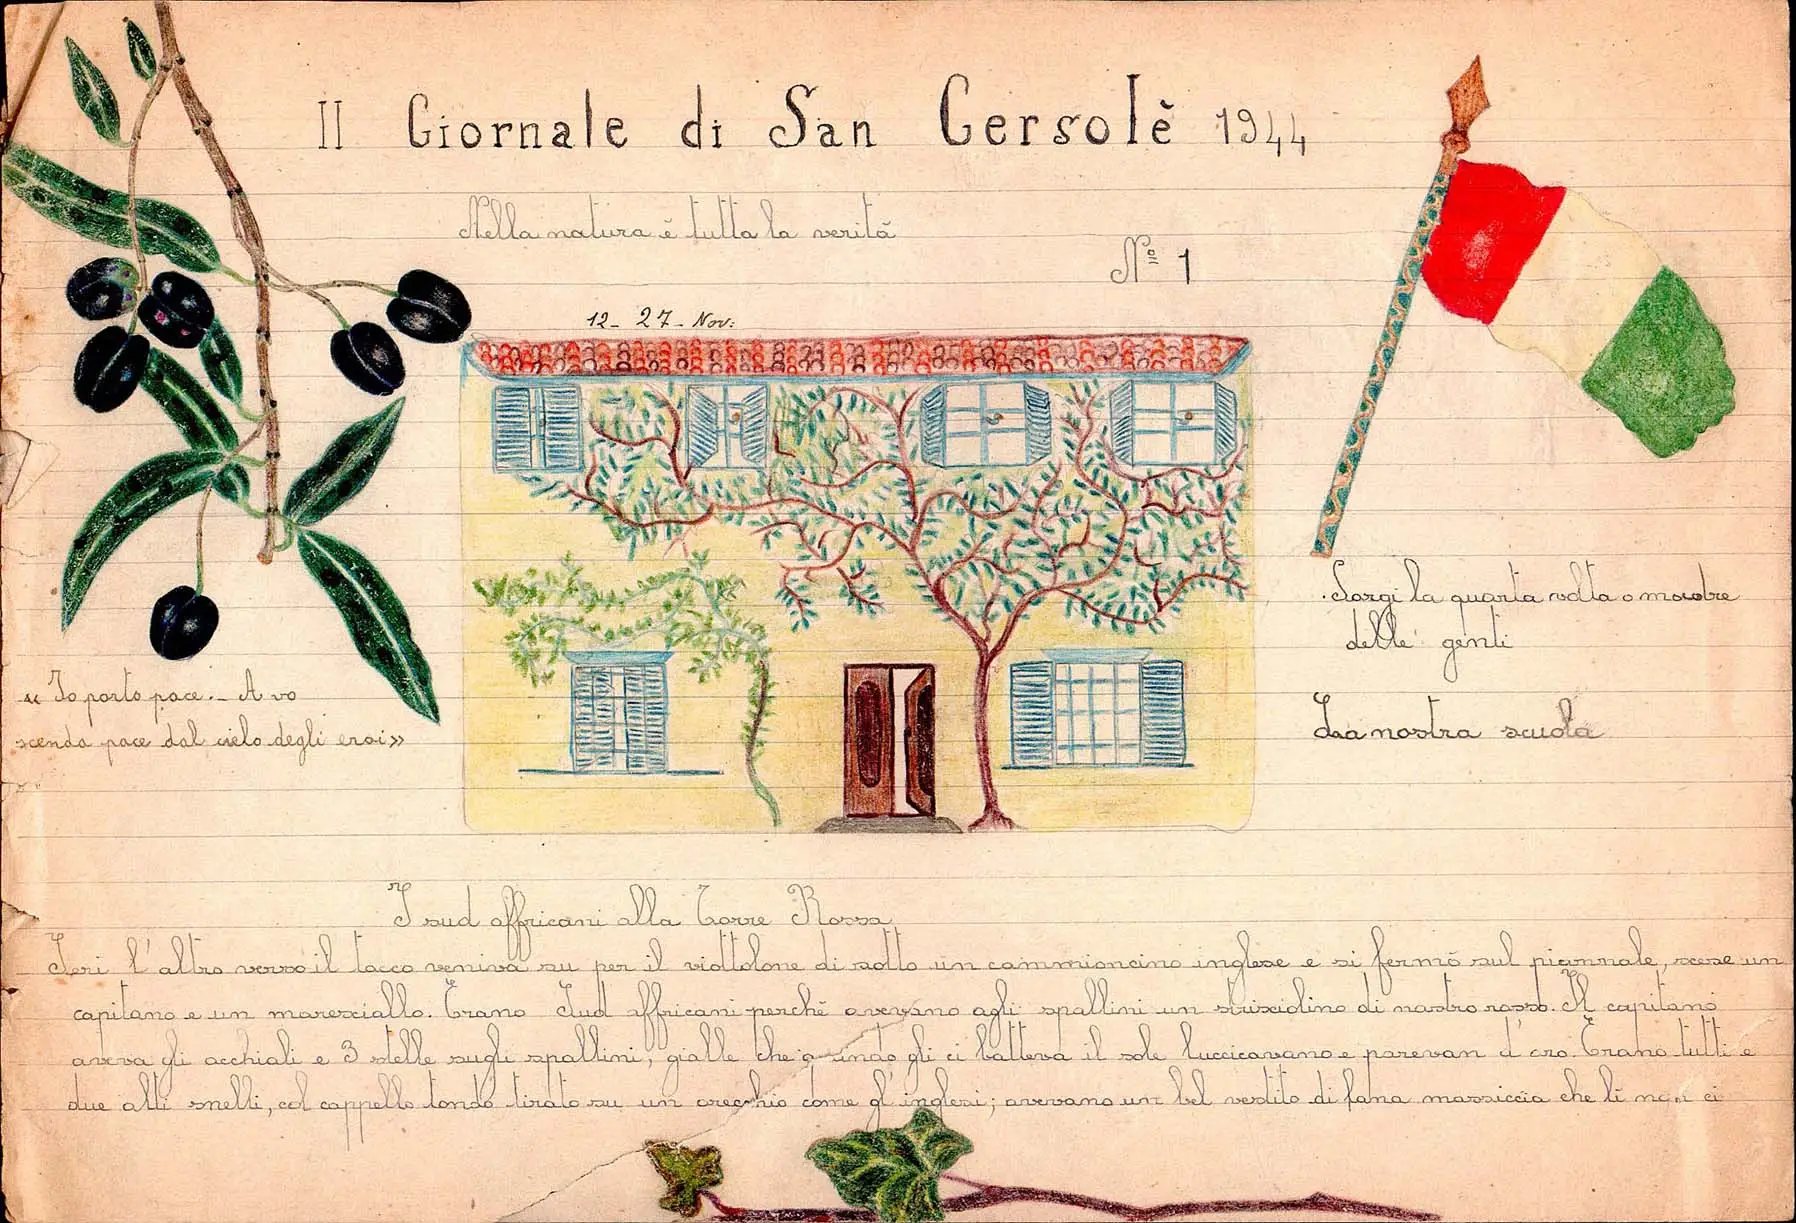 Il Giornale di San Gersolè 1944
Nella natura è tutta la verità
Nº 1
12- 27- Nov:
"Io porto pace. - A vo
scenda pace dal cielo degli eroi»
Sorgi la quarta volta o madre
delle genti
La nostra scuola
I sud affricani alla Torre Rossa
Ieri l'altro verso il tocco veniva su per il viottolone di sotto un cammioncino inglese e si fermò sul piazzale, scese un
capitano e un maresciallo. Erano Sud Affricani perchè avevano agli spallini un strisciolino di nastro rosso. Il capitano
aveva gli occhiali e 3 stelle sugli spallini, gialle che quando gli ci batteva il sole luccicavano e parevan d'oro. Erano tutti e
due alti snelli, col cappello tondo tirato su un orecchio come gl'inglesi; avevano un bel vestito di lana massiccia che li ci